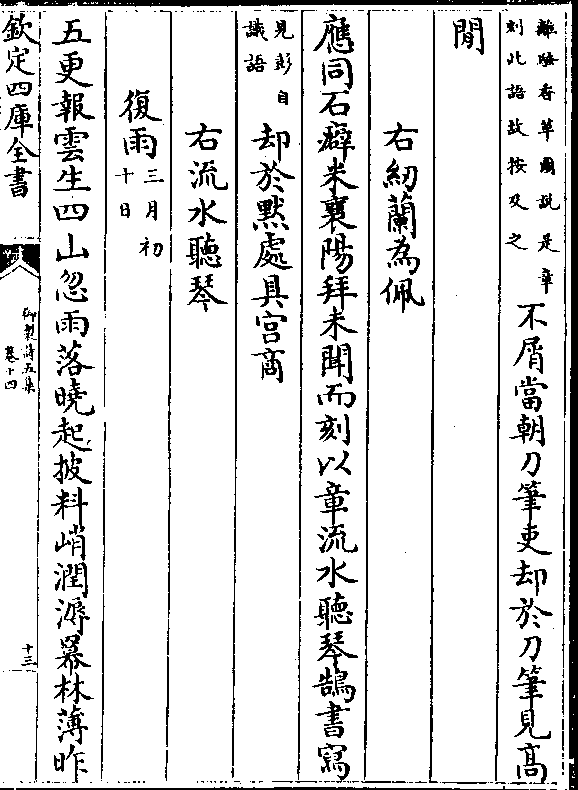 離騷香草圖説是章
刻此語故按及之
不屑當朝刀筆吏却於刀筆見髙
閒
右紉蘭為佩
應同石癖米襄陽拜未聞而刻以章流水聽琴鵠書寫
見彭自
識語
却於黙處具宫商
右流水聽琴
復雨
三月初
十日
五更報雲生四山忽雨落曉起披料峭潤溽羃林薄昨
欽定四庫全書
御製詩五集
卷十四
十三